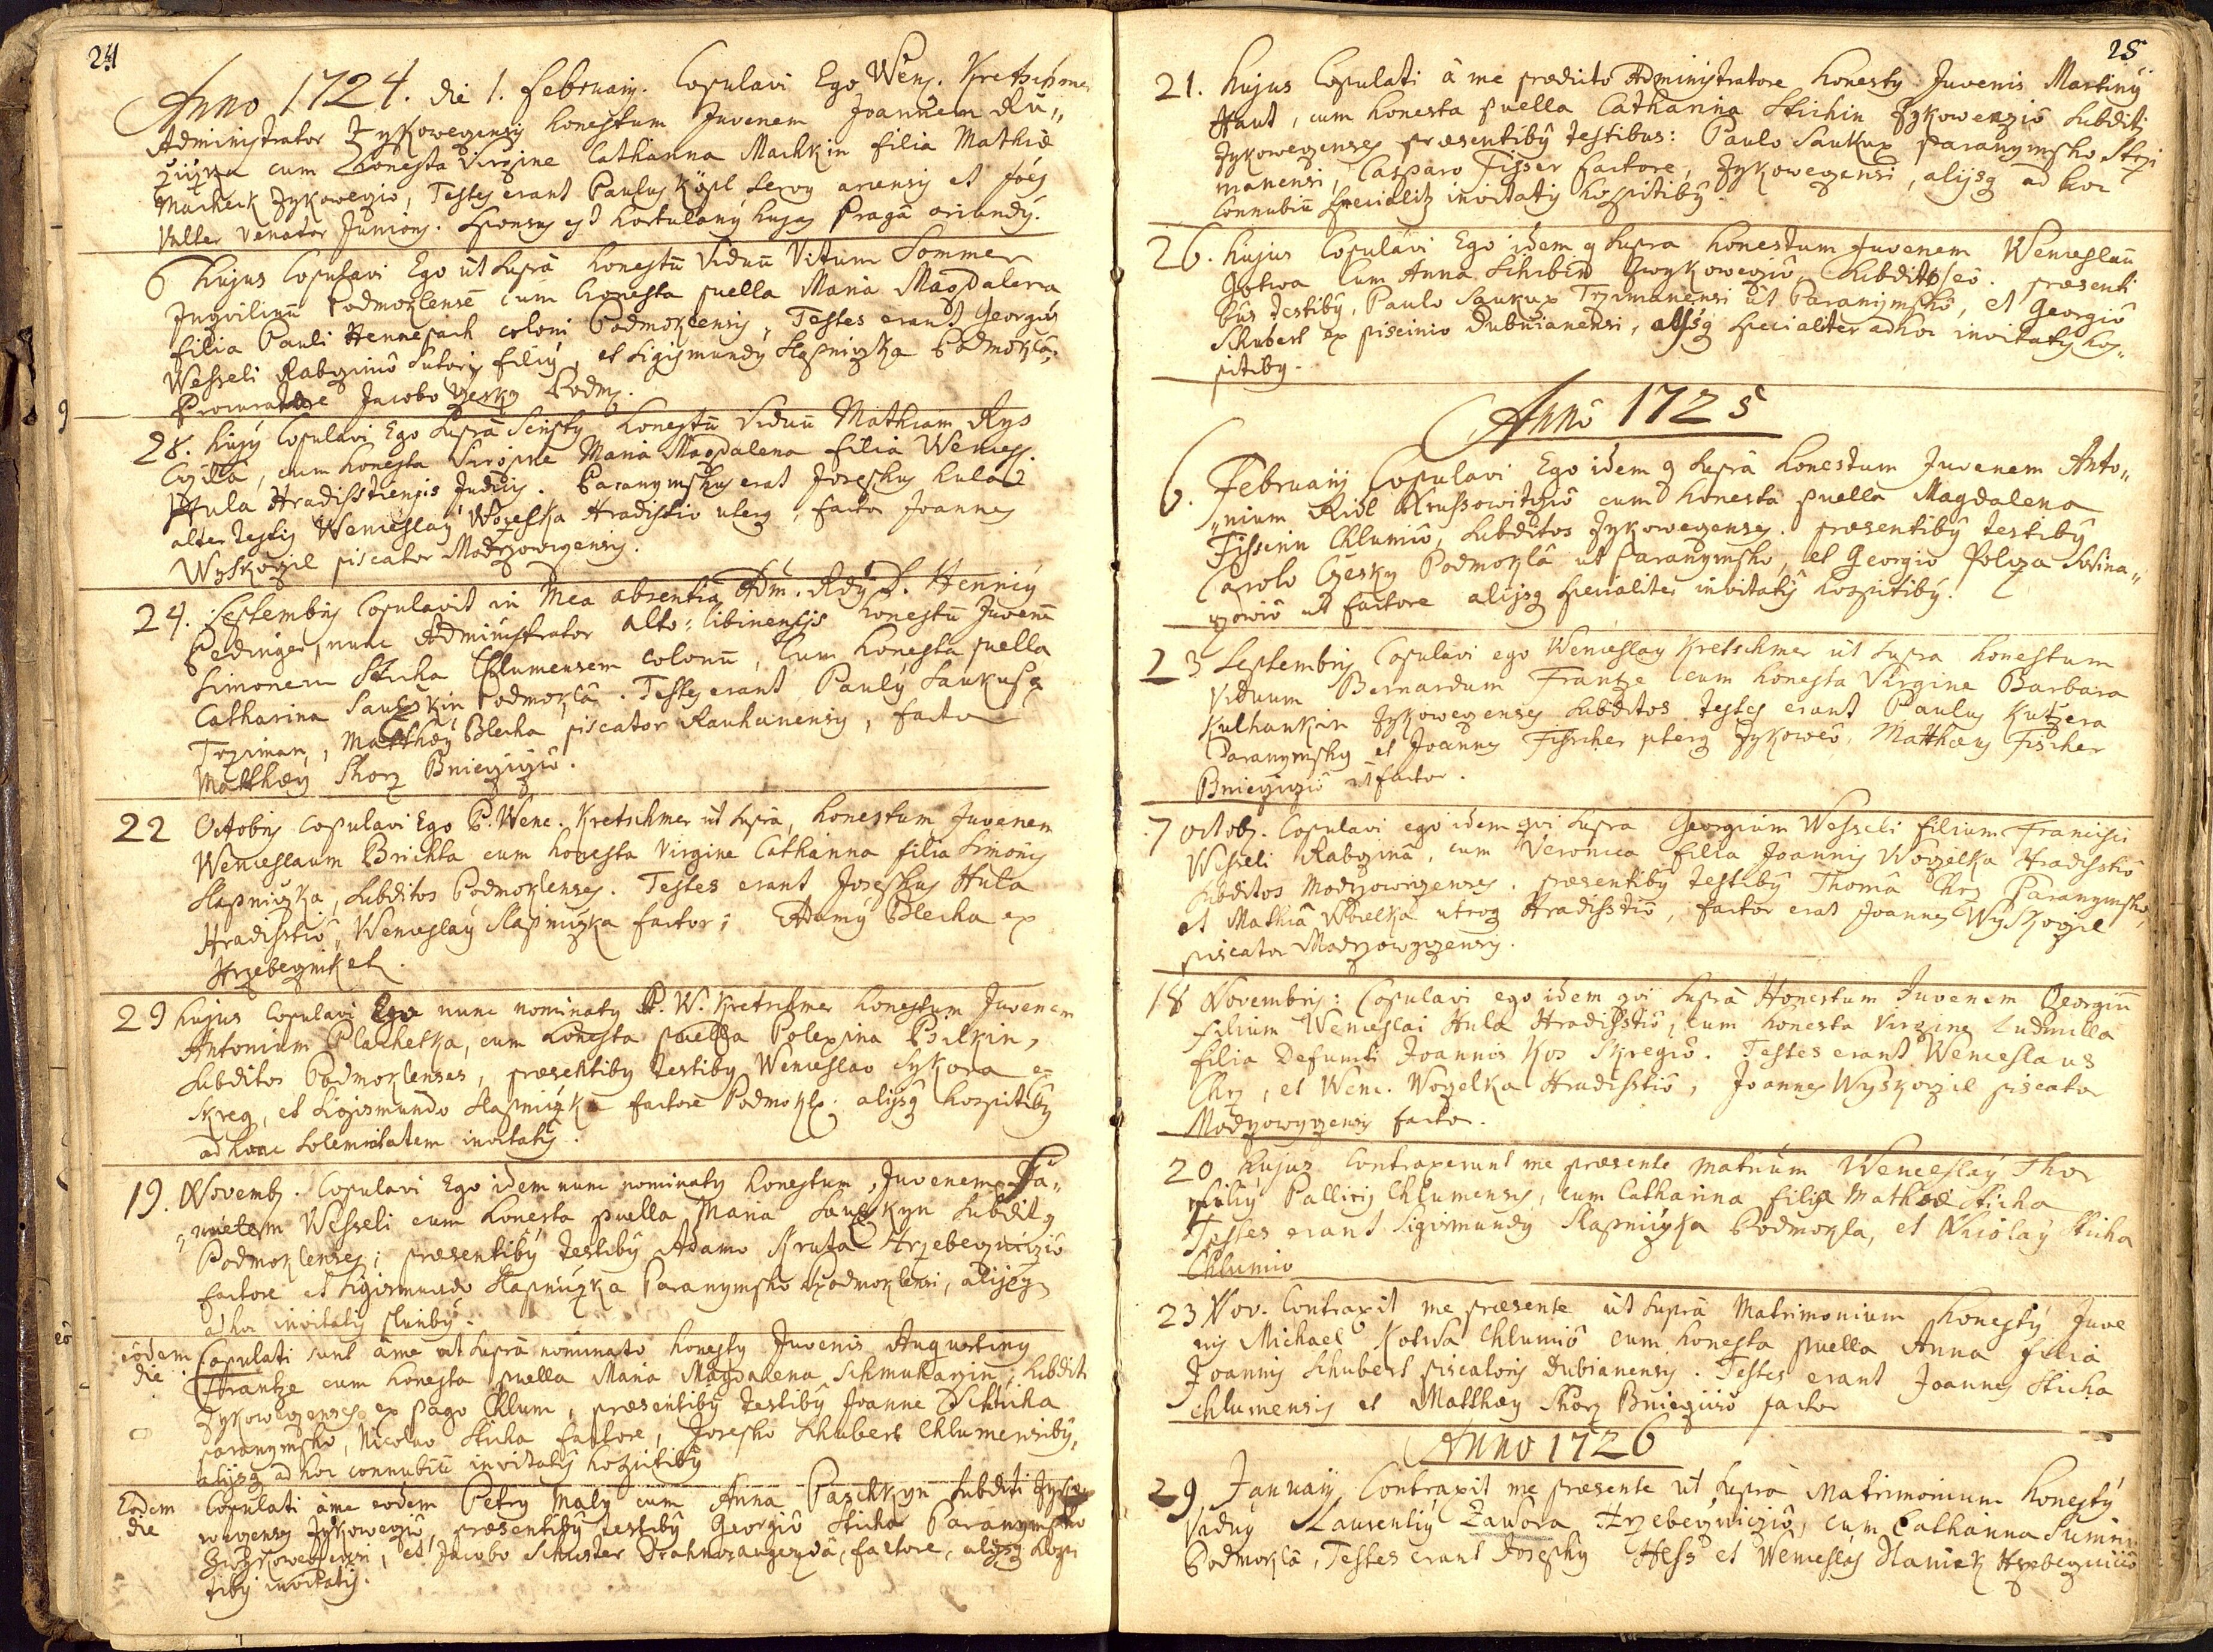 24
Anno 1724. die 1. February. Copulavi Ego Wenc. Kretschmer
Administrator Zykowezensis honestum Juvenem Joannem Ru„
cum honesta Virgine Catharina Machkin filia Mathiæ
Macheck Zykowezio, Testes erant Paulus Köpl servus ariensis et Joês
Valter Venator Juniorig. Sponsus est hortulanus hujas Pragâ oriundg.
6 hujus Copulavi Ego ut suprâ honestu Viduu Vitum Sommer
Inquilinu Podmoklense cum honesta puella Maria Magdalena
filia Pauli Hennesach coloni Podmoklensis, Testes erant Georgig
Wesseli Rabzinio Sutoris filiy, et Sigismundy Slapniczka Podmoklâ,
Procuratore Jacobo Czesky Podm.
28. hujg Copulavi Ego suprà Scripty honestu Viduu Mathiam Rys
, cum honesta Virgine Maria Magdalena filia Wences.
Hula Hradisstiensis Judicis. Paranymphus erat Josephus hula
alter testis Wenceslaý Wozelka Hradistio uterq, factor Joannes
Wyskoczil piscator Modrzowizensis.
24. Septembris Copulavit in Mea absentia Adm. Rdg P. Henricy
Pedinger, nunc Administrator alto: libinensis honestu Juvenê
Simonem Sticha Chlumensem colonu, cum honesta puella
Catharina Saukskin Podmoklâ. Testes erant Paulý Saukup
Trziman, Matthæý Blecha piscator Rauhanensis, factor
Matthæy Skorz Bniecziczio.
22 Octobris Copulavi Ego P. Wenc. Kretschmer ut suprà, honestum Juvenem
Wenceslaum Brichta cum honesta Virgine Catharina filia Simonis
Slapniczka, subditos Podmoklenses. Testes erant Josephus Hula
Hradisstio, Wenceslaý Slapniczka factor; Adamý Blecha ex
Hrzebeznikek.
29 hujus Copulavi Ego nunc nominaty P. W. Kretschmer honestum Juvenem
Antonium Plachetka, cum honesta puella Polexina Bilkin,
subditos Podmoklenses, præsentibg testibg Wenceslao Sykora e=
Skreg, et Sigismundo Slapniczka factore Podmokly. alijsq hospitibg
ad hanc solemnitatem invitatis.
19. Novemb. Copulavi Ego idem nunc nominatg honestum Juvenem Ja„
„ Wesseli cum honesta puella Maria Saukkyn subditg
Podmoklenses; præsentibg testibg Adamo Kruta Hrzebezniczio
factore et Sigismundo Slapniczka Paranympho Podmoklensi, alijsq
ad hoc invitatis pluribg.
eodem Copulati sunt âme ut suprà nominato honesty Juvenis Augustiny
die Frantze cum honesta puella Maria Magdalena Schmukarzin, subditi
Zykowezenses ex pago Chlum, præsentibg testibg Joanne Sticha
paranympho, Nicolao Sticha factore, Josepho Schubert Chlumensibg,
alijsq ad hoc connubiu invitatis hospitibg
Eodem Copulati âme eodem Petrg Maly cum Anna Paschkyn subditi Zyko
die wezensis Zykowezio, præsentibg testibg Georgio Sticha Paranympho
, et Jacobo Schuster Drahnoraugezdâ, factore, alijsq hospi
tibg invitatis.
25
21. hujus Copulati à me prædicto Administratore honesty Juvenis Martiný
Haut, cum honesta puella Catharina Stichin Zykowezio subditi
Zykowezenses præsentibg testibus: Paulo Saukup paranympho Strzi
manensi, Casparo Fisser factore, Zykowezensi, alijsq ad hoc
Connubiu specialiter invitatis hospitibg.
26. hujus Copulavi Ego idem q supra honestum Juvenem Wenceslau
Gotwa cum Anna Schubin Zwykowezio, subditos eo. præsenti
bus testibg, Paulo Saukup Trzimanensi ut Paranympho, et Georgio
Schubert ex piscinio Dubnianensi, alijsq specialiter ad hoc invitatis hos„
pitibg.
Anno 1725
6. February Copulavi Ego idem q suprà honestum Juvenem Anto„
„nium Ridl Krussowitzio cum honesta puella Magdalena
Fisserin Chlumio, subditos Zykowezenses. præsentibg testibg
Carolo Czesky Podmoklâ ut paranympho, et Georgio Polcza Swina„
rzowio ut factore alijsq specialiter invitatis hospitibg.
23 Septembris Copulavi ego Wenceslag Kretschmer ut supra honestum
Viduum Bernardum Frantze cum honesta Virgine Barbara
Kulhankin Zykowezenses subditos testes erant Paulus Kutzera
Paranymphg et Joannes Fischer uterq Zykoweo, Matthæus Fischer
Bniecziczio ut factor.
7 octob. Copulavi ego idem qvi supra Georgium Wesseli filium Francisci
Wesseli Rabzinâ, cum Veronica filia Joannis Wozelka Hradisstio
subditos Modrzowizenses. præsentibg testibg Thomâ Chrz Paranympho,
et Mathiâ Wozelka utroq Hradisstio, factor erat Joannes Wyskoczil
piscator Modrzowyzensis.
18 Novembris: Copulavi ego idem qvi suprà Honestum Juvenem Georgiu
filium Wenceslai Hula Hradisstio, cum honesta Virgine Ludmilla
filia Defuncti Joannis Kos Skregio. Testes erant Wenceslaus
Chrz, et Wenc. Wozelka Hradisstio, Joannes Wyskoczil piscator
Modrzowyzensis factor.
20 hujus Contraxerunt me præsente matrium Wenceslaý Thor
filiý Pallicis Chlumensis, cum Catharina filia Mathæi Sticha
Testes erant Sigismundy Slapniczka Podmokla, et Nicolaý Sticha
Chlumio
23 Nov. Contraxit me præsente ut suprà Matrimonium honestý Juve
nis Michael Kotwa Chlumio cum honesta puella Anna filia
Joannis Schubert piscatoris Dubianensis. Testes erant Joannes Sticha
Chlumensis et Matthæy Skorz Bniecziczio factor
Anno 1726
29 January Contraxit me præsente ut suprà Matrimonium honestý
Viduý Laurentiý Zawora Hrzebezniczio, cum Catharina
Podmoklâ, Testes erant Josephy Hess et Wenceslaý Haniek Hrzebezniczio